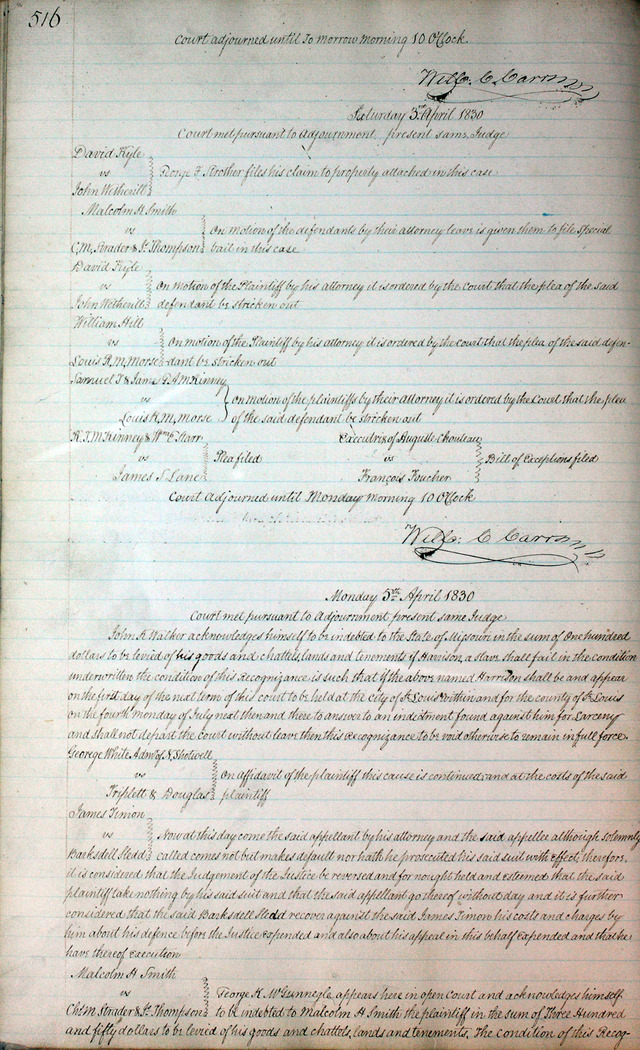 516
Court adjourned until To morrow morning 10 OClock.
Will. C. Carr
Saturday 3rd April 1830
Court met pursuant to Adjournment, present same Judge
David Kyle
vs
John Wetherill
George F Strother files his claim to property attached in this case
Malcolm H. Smith
vs
C. M. Strader & St. Thompson
On motion of the defendants by their attorney leave is given them to file special
bail in this case
David Kyle
vs
John Wetherill
On motion of the Plaintiff by his attorney it is ordered by the Court that the plea of the said
defendant be stricken out
William Hill
vs
Louis R. M. Morse
On motion of the Plaintiff by his attorney it is ordered by the court that the plea of the said defen-
dant be stricken out
Samuel T. & James G. A. McKinney
vs
Louis R. M. Morse
On motion of the plaintiffs by their attorney it is ordered by the Court that the plea
of the said defendant be stricken out
R. T. McKinney & Wm C. Carr
vs
James S. Lane
Plea filed
Executrix of Auguste Chouteau
vs
François Foucher
Bill of Exceptions filed
Court Adjourned until Monday morning 10 OClock
Will. C Carr
Monday 5th April 1830
Court met pursuant to Adjournment, present same Judge
John K. Walker acknowledges himself to be indebted to the State of Missouri in the sum of One hundred
dollars to be levied of his goods and chattels, lands and tenements if Harrison, a slave shall fail in the condition
underwritten the condition of this Recognizance is such that if the above named Harrison shall be and appear
on the first day of the next term of this court to be held at the city of St Louis within and for the county of St Louis
on the fourth monday of July next then and there to answer to an indictment found against him for Larceny
and shall not depart the Court without leave then this Recognizance to be void otherwise to remain in full force
George White Admr of N. Shotwell
vs
Triplett & Douglas
On affidavit of the plaintiff this cause is continued and at the costs of the said
plaintiff
James Timon
vs
Barksdell Sledd
Now at this day come the said appellant by his attorney and the said appellee although solemnly
called comes not but makes default nor hath he prosecuted his said suit with effect, therefore,
it is considered that the Judgement of the Justice be reversed and for nought held and esteemed that the said
plaintiff take nothing by his said suit and that the said appellant go thereof without day and it is further
considered that the said Barksdell Sledd recover against the said James Timon his costs and charges by
him about his defence before the Justice expended and also about his appeal in this behalf expended and that he
have thereof execution
Malcolm H Smith
vs
Chs. M. Strader & St. Thompson
George K. McGunnegle appears here in open Court and acknowledges himself
to be indebted to Malcolm H Smith the plaintiff in the sum of Three Hundred
and fifty dollars to be levied of his goods and chattels, lands and tenements. The condition of this Recog-